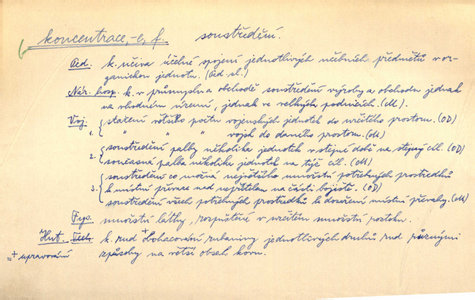 koncentrace,-e, f. soustředění.
Ped. k. učiva účelné spojení jednotlivých učebních předmětů v or-
ganickou jednotu. (Ped. sl.)
Nár. hosp. k. v průmyslu a obchodě soustředění výroby a obchodu jednak
na vhodném území, jednak ve velkých podnicích. (Ml.)
Voj. 1. stažení většího počtu vojenských jednotek do určitého prostoru. (OD)
" " " vojsk do daného prostoru. (Ml)
2. soustředění palby několika jednotek v stejné době na stejný cíl. (OD)
současná palba několika jednotek na týž cíl. (Ml)
3. soustředění co možná největšího množství potřebných prostředků
k místní převaze nad nepřítelem na části bojiště. (OD)
soustředění všech potřebných prostředků k dosažení místní převahy. (Ml)
Fys. množství látky, rozpuštěné v určitém množství roztoku.
Hut. k. rud + obohacování rubaniny jednotlivých druhů rud různými
"+ upravování způsoby na větší obsah kovu.